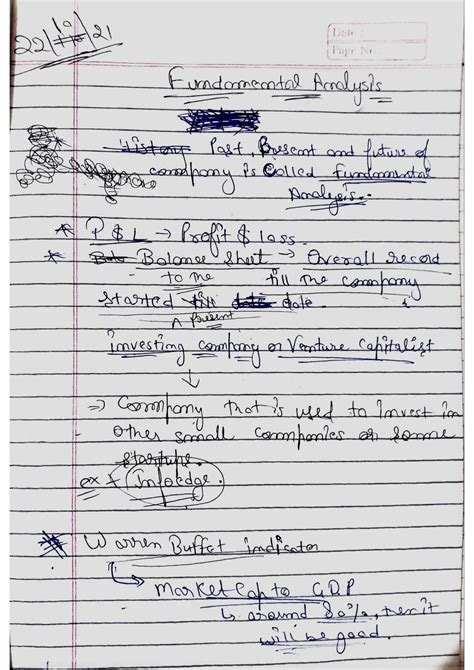 22/10/21
Date:
Page No:
Fundamental Analysis
History Past, Present and future of
company is called Fundamental
Analysis.
* P & L → Profit & loss.
* Balance Sheet → Overall record
to the till the company
started till date date.
^ present
investing company or Venture Capitalist
↓
⇒ Company that is used to invest in
other small companies or some
startups.
ex → Infoedge.
* Warren Buffet indicator
↳ Market Cap to GDP
↳ around 80%, then it
will be good.